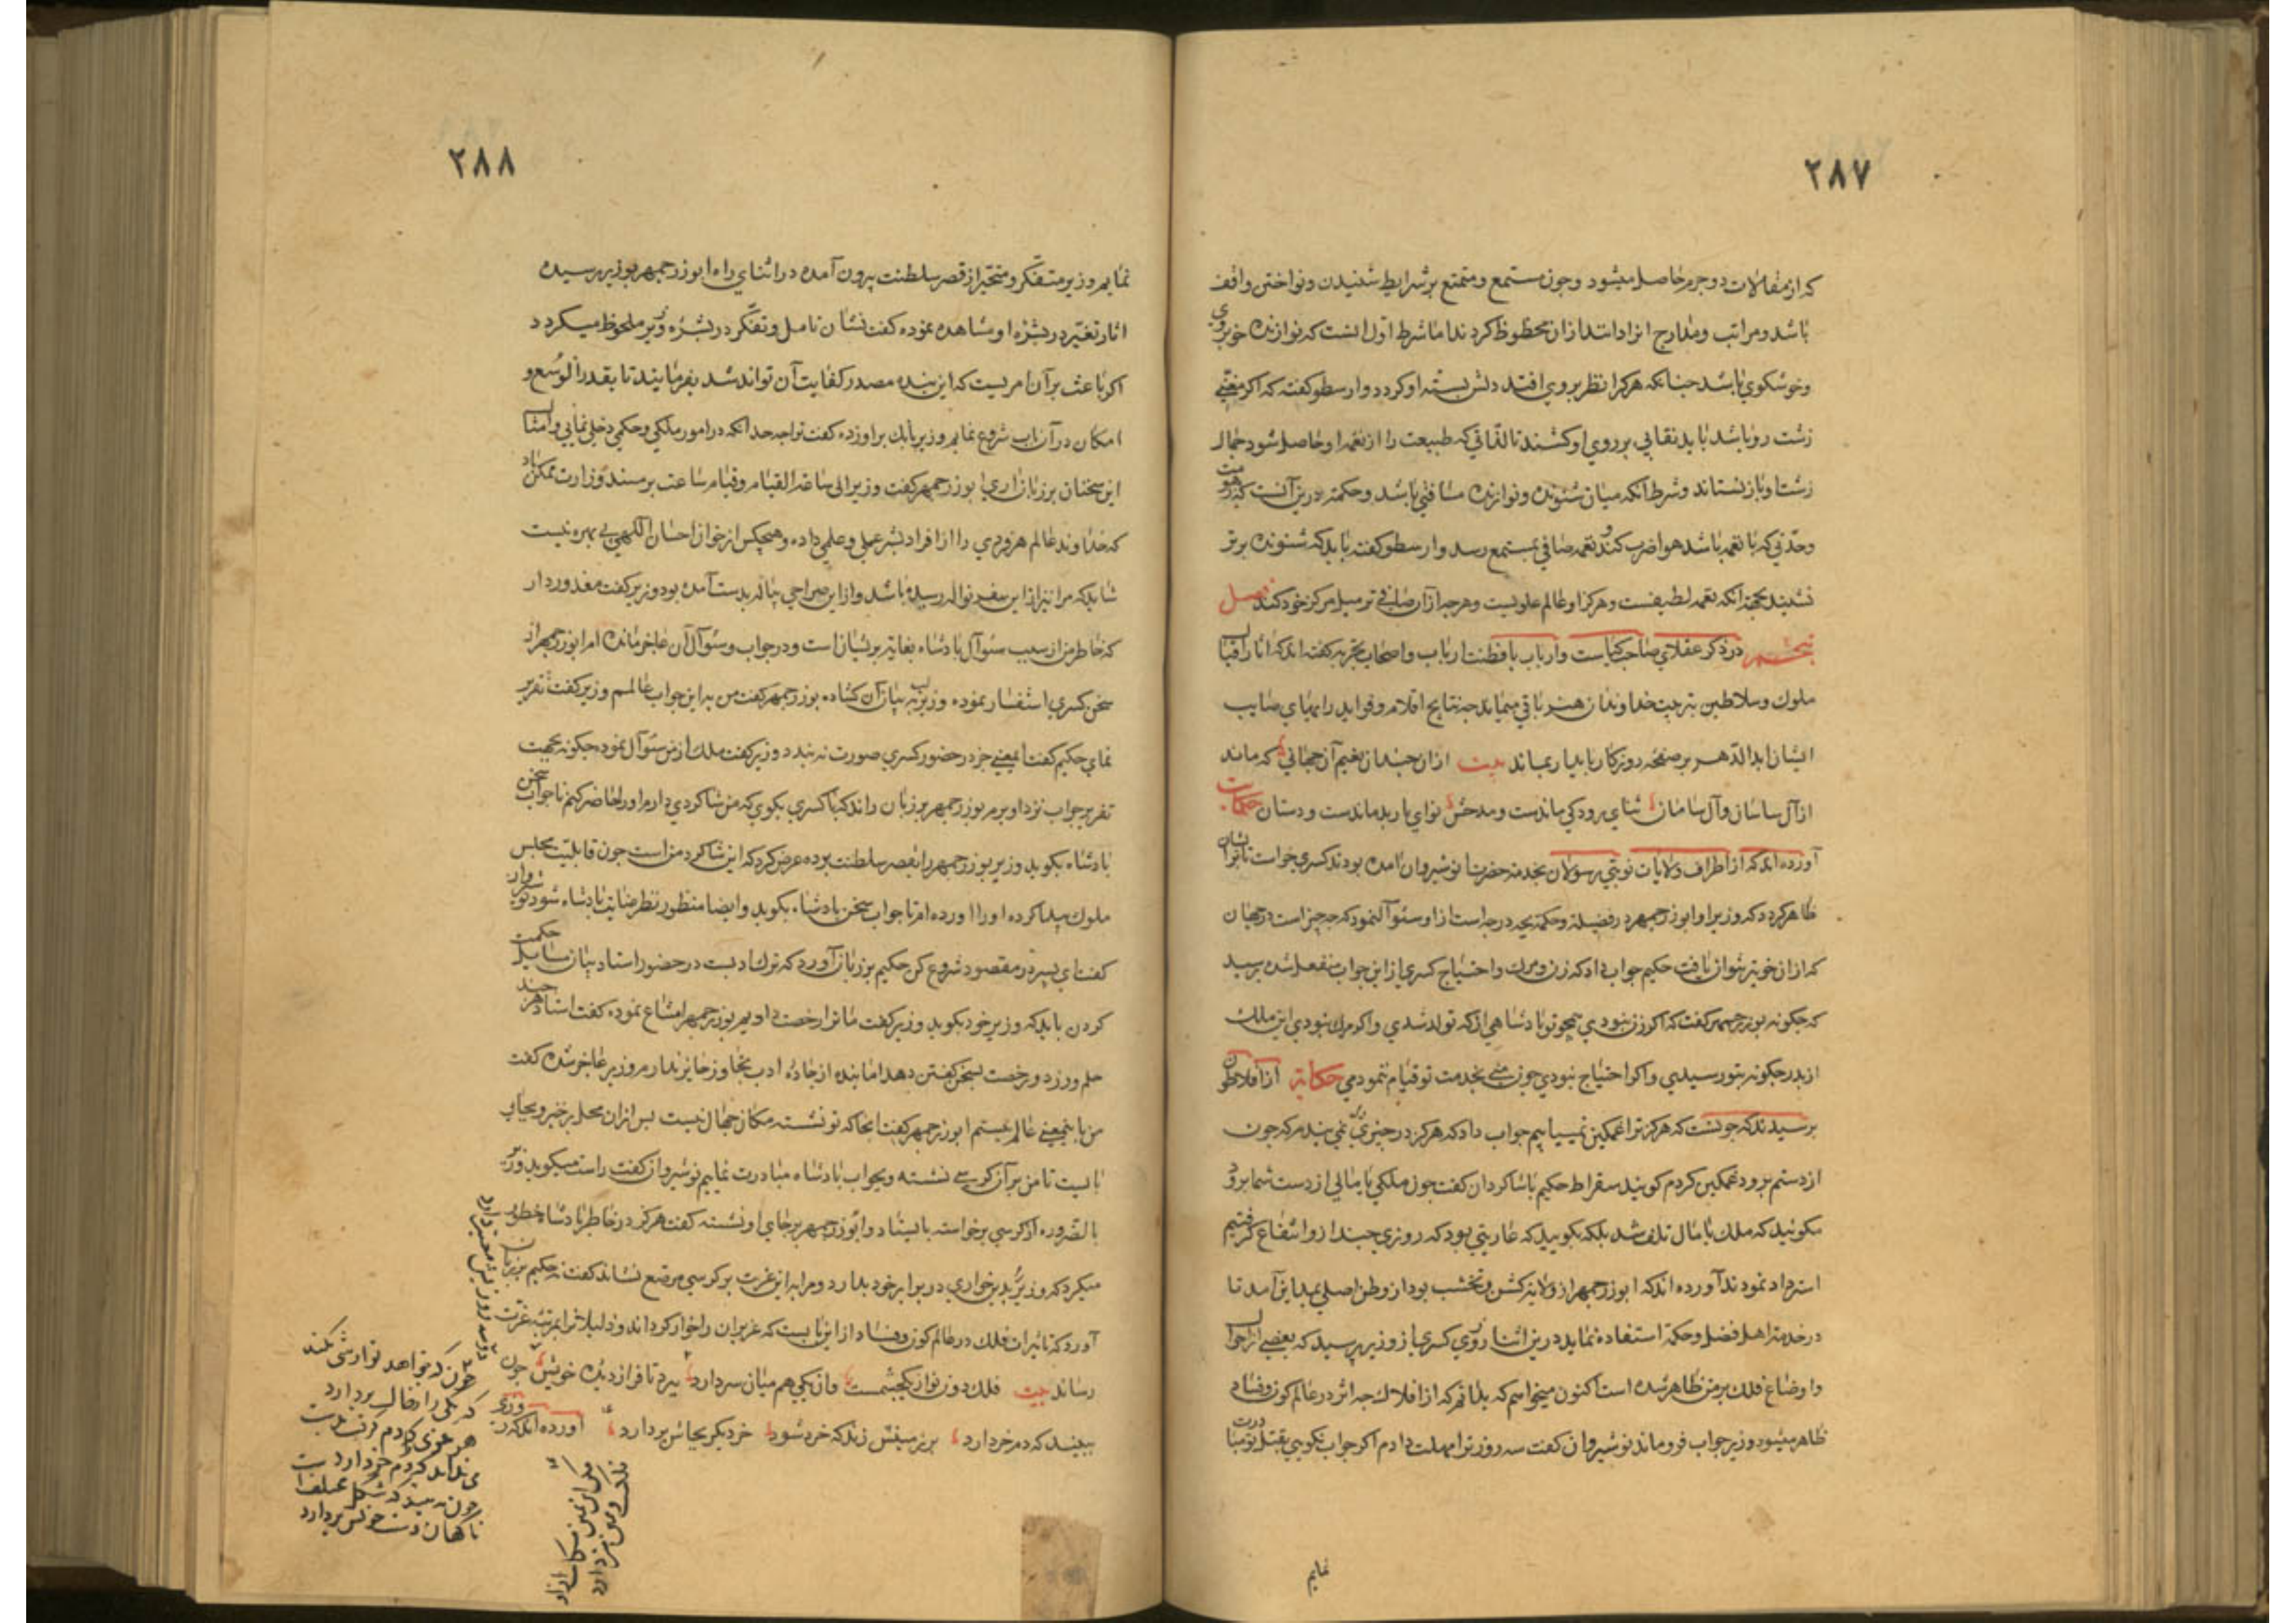 ٢٨٧
که از مقالات دو جرم حاصل میشود وچون مستمع ومتمتع بر شرایط شنیدن ونواختن واقف
باشد ومراتب ومدارج انرا داند ازان محظوظ کردد اما شرط اول انست که نوازنده خوبروی
وخوشکوی باشد چنانکه هرکرا نظر بروی افتد دلش بسته او کردد وارسطو کفته که اکر مغنی
زشت رو باشد باید نقابی بر روی او کشند تا لذاتی که طبیعت را از نغمه او حاصل شود جمال
زشت او باز نستاند وشرط آنکه میان شنونده ونوازنده مسافتی باشد وحکمت درین آنست که
وحدتی که با نغمه باشد هوا ضرب کند ونغمه صافی بمستمع رسد وارسطو کفته باید که شنونده برتر
نشیند بجهة انکه نغمه لطیفست ومرکز او عالم علویست وهرچه ازان صافی تر میل مرکز خود کند فصل
پنجم در ذکر عقلای صاحب کیاست وارباب با فطنت ارباب واصحاب تجربه کفته اند که اثار القاب
ملوک وسلاطین بتربیت خداوندان هنر باقی میماند چه نتایج اقلام وفواید رایهای صایب
ایشان ابدالدهر بر صفحه روزکار یادکار بماند بیت ازان چندان نعیم آن جهانی که ماند
از آل ساسان وآل سامان ثنای رودکی ماندست ومدحش نوای باربد ماندست ودستان حکایت
آورده اند که از اطراف ولایات نوبتی رسولان بخدمت حضرت نوشیروان امده بودند کسری خواست تا برایشان
ظاهر کردد که وزیر او ابوزرجمهر در فضیلة وحکمة بچه درجه است ازو سئوال نمود که چه چیز است در جهان
که ازان خوبتر نتوان یافت حکیم جواب داد که زن ومرک واحتیاج کسری ازین جواب منفعل شده پرسید
که چکونه بوزرجمهر کفت که اکر زن نبودی همچو تو پادشاهی از که تولد شدی واکر مرک نبودی این ملک
از پدر چکونه بتو رسیدی واکر احتیاج نبودی چون منی بخدمت تو قیام ننمودمی حکایة از افلاطون
پرسیدند که چونست که هرکز ترا غمکین نمییابیم جواب داد که هرکز در چیزی نمی بندم که چون
از دستم برود غمکین کردم کویند سقراط حکیم با شاکردان کفت چون ملکی یا مالی از دست شما برود
مکوئید که ملک یا مال تلف شد بلکه بکویید که عاریتی بود که روزی چند ازو انتفاع کرفتیم
استرداد نمودند آورده اند که ابوزرجمهر از ولایة کش ونخشب بود از وطن اصلی بمداین آمد تا
در خدمت اهل فضل وحکمة استفاده نماید درین اثنا روزی کسری از وزیر پرسید که بعضی از احوال
واوضاع فلک بر من ظاهر شده است اکنون میخواهم که بدانم که از افلاک چه اثر در عالم کون وفساد
ظاهر میشود وزیر جواب فروماند نوشیروان کفت سه روز ترا مهلت دادم اکر جواب نکویی بقتل تو مبادرت
نمایم
٢٨٨
نمایم وزیر متفکر ومتحیر از قصر سلطنت بیرون آمده در اثنای راه ابوزرجمهر بوزیر رسیده
اثار تغیر در بشره او مشاهده نموده کفت نشان تامل وتفکر در بشره وزیر ملحوظ میکردد
اکر باعث بر آن امریست که این بنده مصدر کفایت آن تواند شد بفرمایند تا بقدر الوسع و
امکان در آن باب شروع نمایم وزیر بانک براورده کفت تو اجه حد انکه در امور ملکی وحکمی دخل نمایی وامثال
این سخنان بر زبان اری ابوزرجمهر کفت وزیر الی ساعة القیام وقیام ساعت بر مسند وزارت ممکن باد
که خداوند عالم هر فردی را از افراد بشر عملی وعلمی داده وهیچکس از خوان احسان الهی بی بهره نیست
شاید که مرا نیز از این سفره نواله رسیده باشد واز این صراحی پیاله بدست آمده بود وزیر کفت معذور دار
که خاطر من از سبب سئوال پادشاه بغایة پریشان است ودر جواب وسئوال آن عاجز مانده ام ابوزرجمهر از
سخن کسری استفسار نموده وزیر لب به بیان آن کشاده بوزرجمهر کفت من به این جواب عالمم وزیر کفت تقریر
نمای حکیم کفت اینمعنی جز در حضور کسری صورت نه بندد وزیر کفت ملک از من سئوال نموده چکونه بجهت
تقریر جواب ترا نزد او برم بوزرجمهر بر زبان راند که با کسری بکوی که من شاکردی دارم اورا حاضر کنم تا جواب سخن
پادشاه بکوید وزیر بوزرجمهر را بقصر سلطنت برده عرض کرد که این شاکرد من است چون قابلیت مجلس
ملوک پیدا کرده اورا اورده ام تا جواب سخن پادشاه بکوید وایضا منظور نظر عنایت پادشاه شود
کفت ای پسر در مقصود شروع کن حکیم بر زبان آورد که ترک ادبست در حضور استاد بیان مسایل حکمت
کردن باید که وزیر خود بکوید وزیر کفت ما ترا رخصت دادیم بوزرجمهر امتناع نموده کفت استاد هر چند
حلم ورزد ورخصت سخن کفتن دهد اما بنده از جاده ادب تجاوز جایز ندارم وزیر عاجز شده کفت
من باینمعنی عالم نیستم ابوزرجمهر کفت انجا که تو نشسته مکان جهال نیست پس ازان محل برخیز وبجای
بایست تا من بر آن کرسی نشسته وبجواب پادشاه مبادرت نماییم نوشیروان کفت راست میکوید وزیر
بالضروره از کرسی برخواسته بایستاد وابوزرجمهر بر جای او نشسته کفت هرکز در خاطر پادشاه خطور
میکرد که وزیر را بدین خواری در برابر خود بدارد ومرا به این عزت بر کرسی مرصع نشاند کفت نه حکیم بر زبان
آورد که تاثیرات فلک در عالم کون وفساد از این بابست که عزیزان را خوار کرداند وذلیلانرا بمرتبه عزت
رساند بیت فلک دوزنواز یکچشمست وان یکی هم میان سر دارد ببرد تا فراز دیده خویش چون
ببیند که دم خر دارد بر زمینش زند که خرد شود خر دیکر بجاش بردارد آورده اند که در
چون که خواهد نوازشی بکند
که یکی را ز خاک بردارد